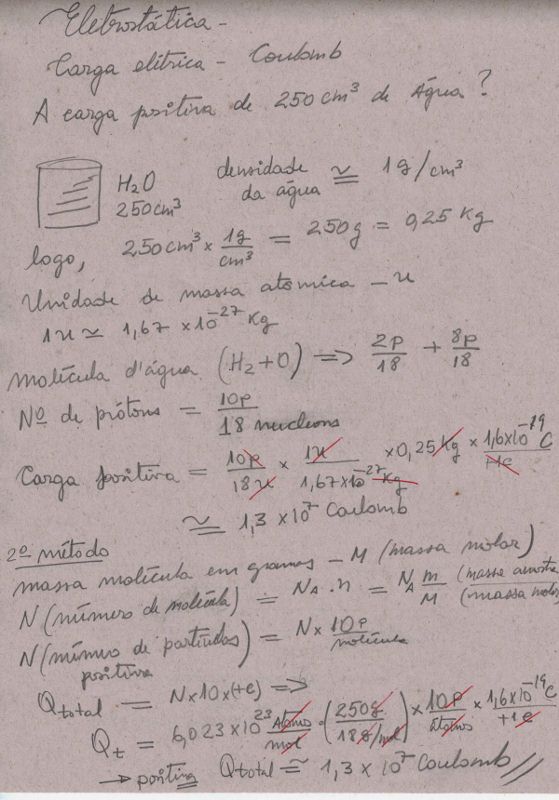 Eletrostática -
Carga elétrica - Coulomb
A carga positiva de 250 cm³ de Água?
H₂O
250 cm³
densidade da água ≅ 1g/cm³
logo, 250 cm³ × 1g/cm³ = 250g = 0,25 Kg
Unidade de massa atômica - u
1u ≃ 1,67 × 10⁻²⁷ Kg
molécula d'água (H₂+O) ⇒ 2p/18 + 8p/18
Nº de prótons = 10p/18 nucleons
Carga positiva = 10p/18u × 1u/1,67×10⁻²⁷Kg × 0,25 Kg × 1,6×10⁻¹⁹C/
≅ 1,3 × 10⁷ Coulomb
2º método
massa molécula em gramas - M (massa molar)
N (número de molécula) = N_A . n = N_A m/M (massa amostra)/(massa molar)
N (número de partículas positivas) = N × 10p/molécula
Qtotal = N×10×(+e) ⇒
Qt = 6,023 × 10²³ Átomo/mol · (250g/18g/mol) × 10p/átomo × 1,6×10⁻¹⁹C/+1e
→ positiva Qtotal ≅ 1,3 × 10⁷ Coulomb //